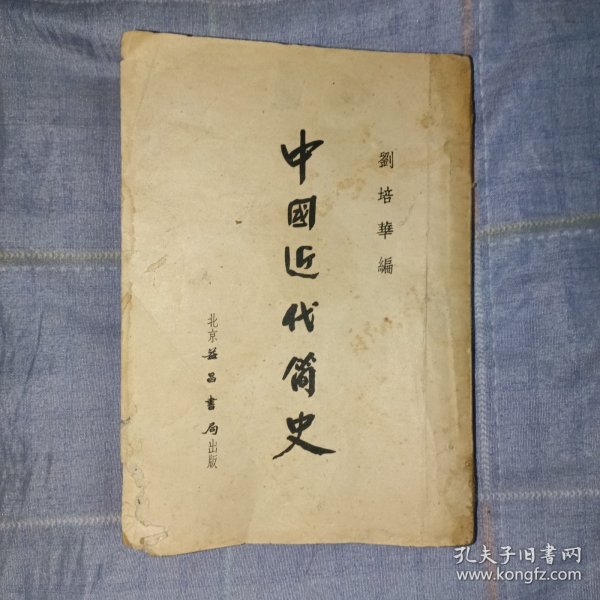 劉培華編
中國近代简史
北京益昌書局出版
孔夫子旧書网
www.kongfz.com